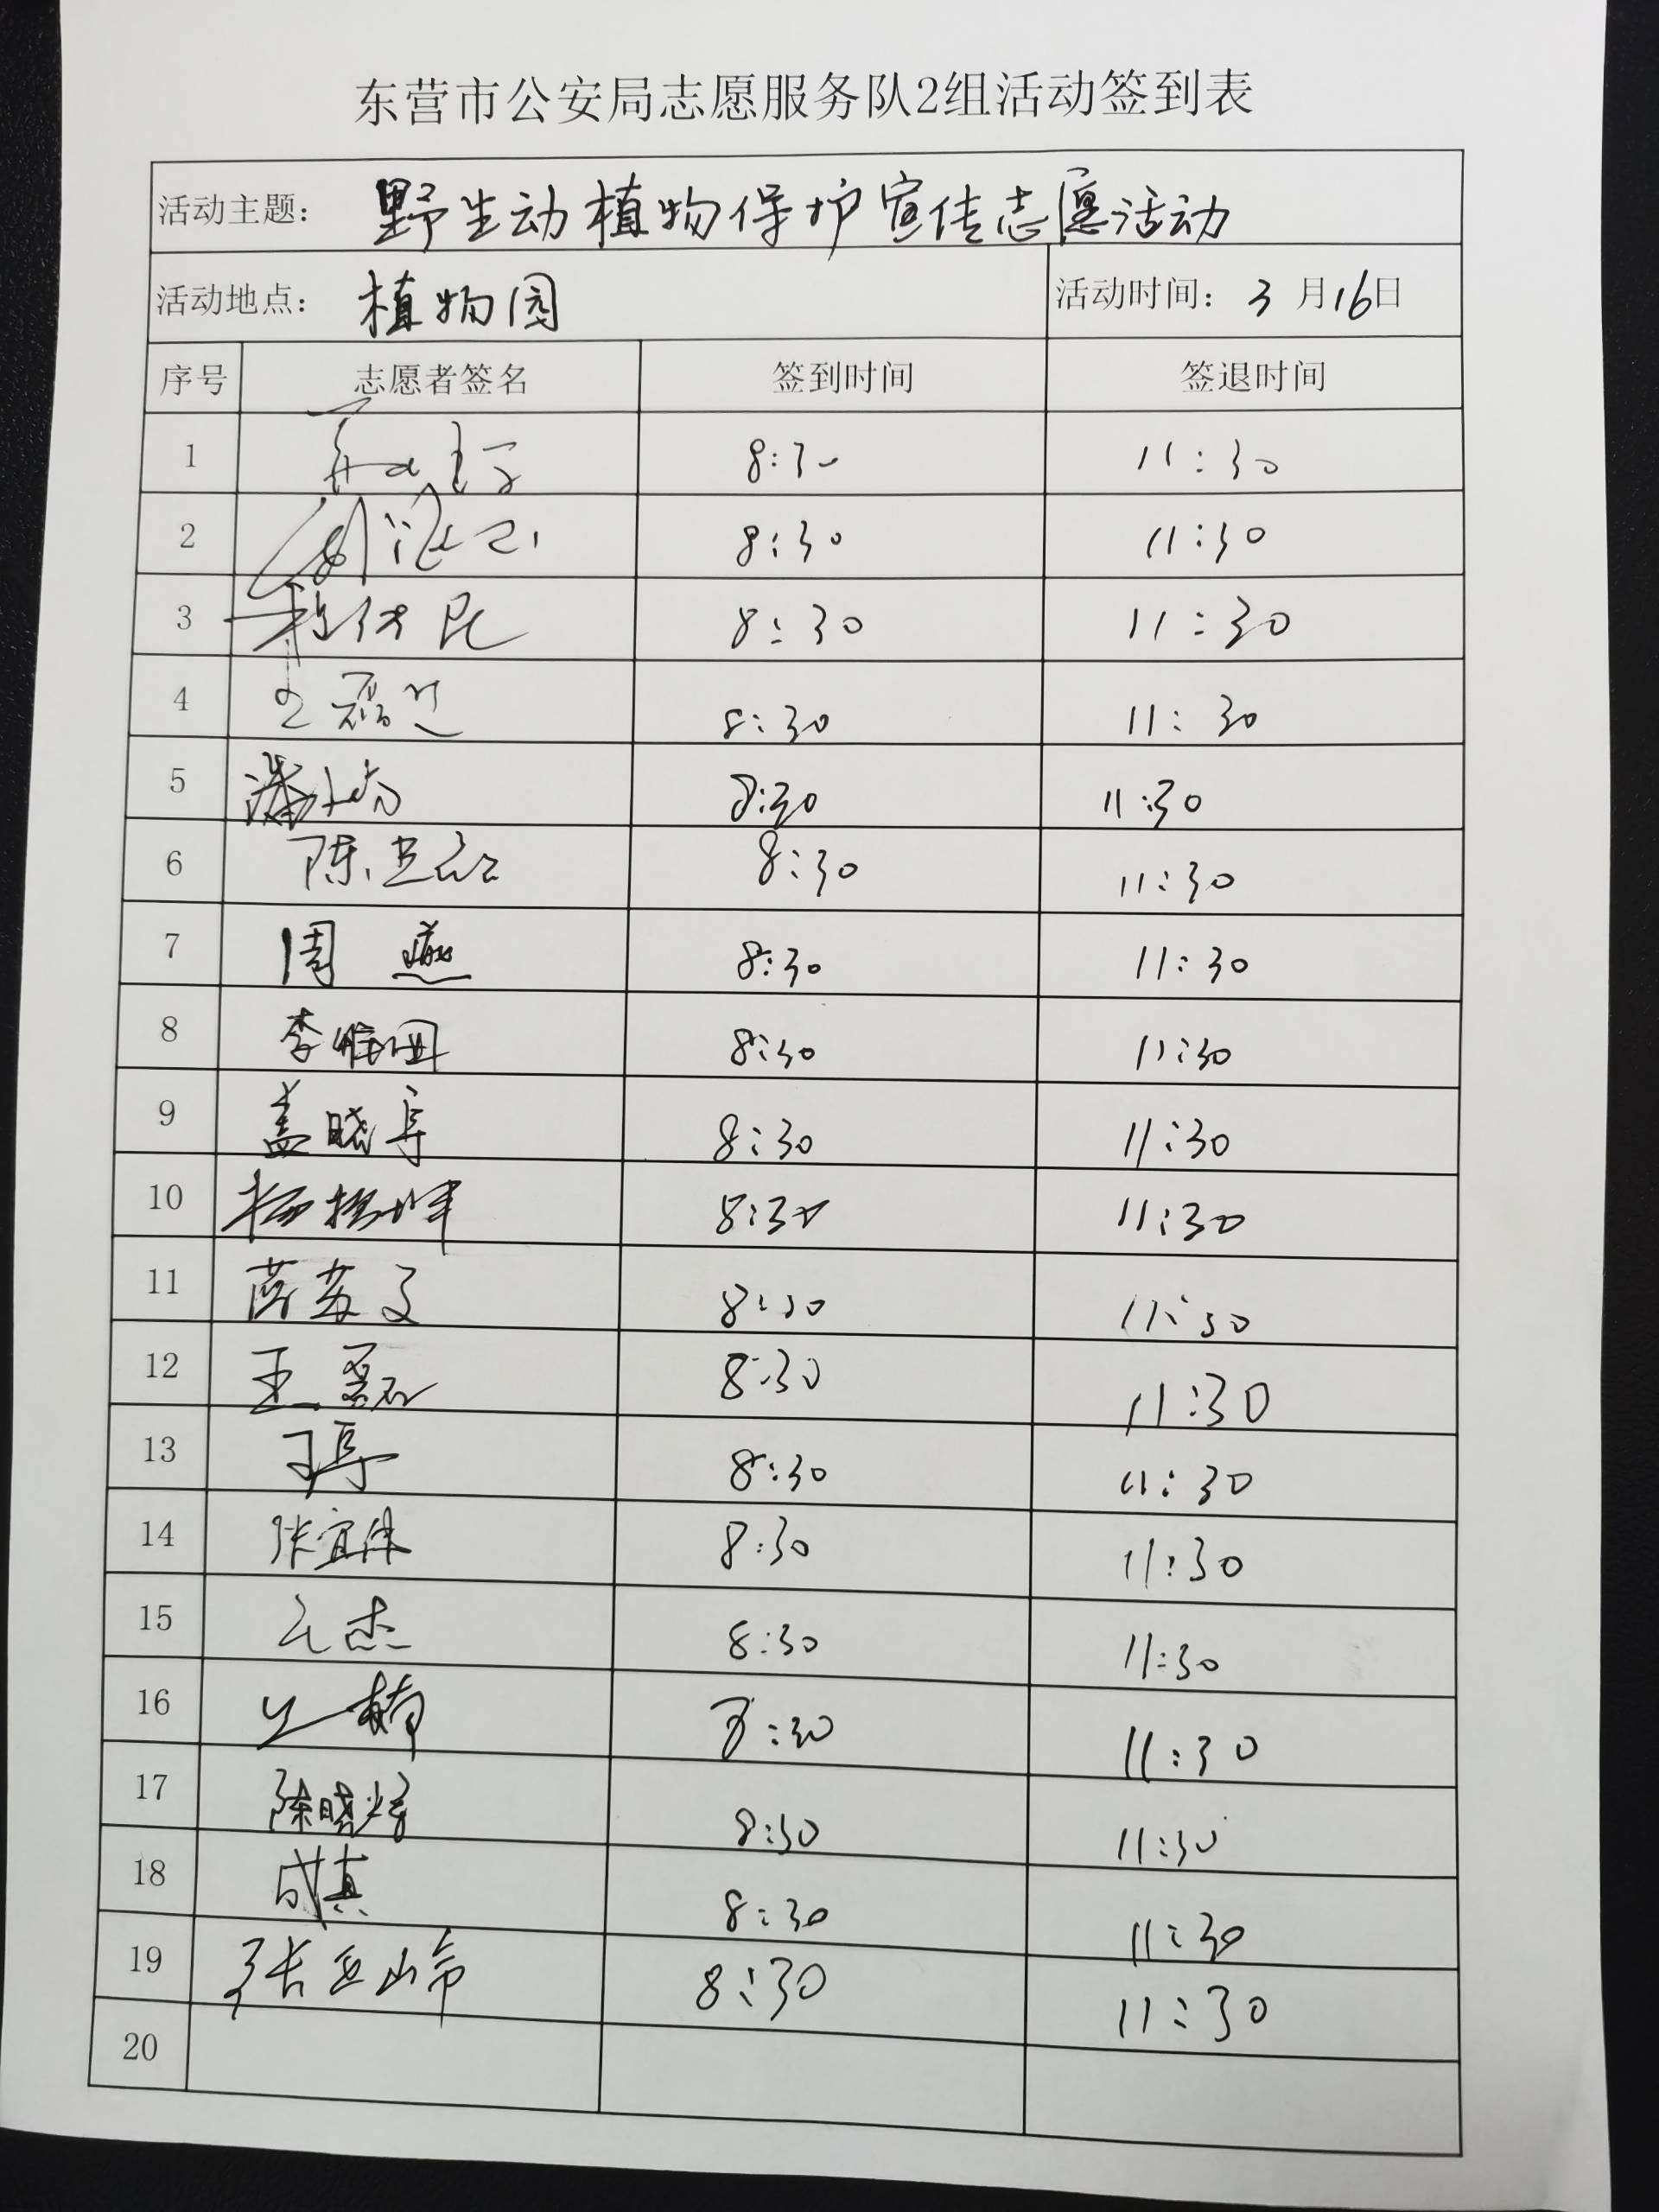 东营市公安局志愿服务队2组活动签到表
活动主题: 野生动植物保护宣传志愿活动
活动地点: 植物园 活动时间: 3月16日
序号 志愿者签名 签到时间 签退时间
1 8:30 11:30
2 8:30 11:30
3 8:30 11:30
4 8:30 11:30
5 8:30 11:30
6 8:30 11:30
7 周燕 8:30 11:30
8 8:30 11:30
9 8:30 11:30
10 8:30 11:30
11 8:30 11:30
12 王磊 8:30 11:30
13 8:30 11:30
14 张宜伟 8:30 11:30
15 8:30 11:30
16 8:30 11:30
17 8:30 11:30
18 成真 8:30 11:30
19 8:30 11:30
20